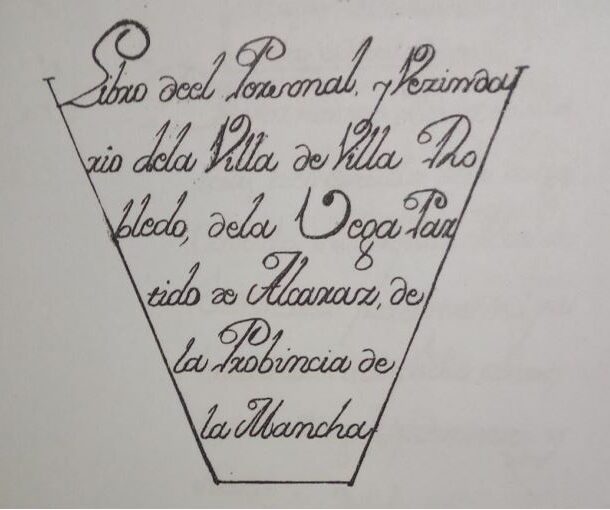 Libro deel Personal, y Vezinda
rio dela Villa de Villa Rro
bledo, dela Vega Par
tido de Alcaraz, de
la Probincia de
la Mancha